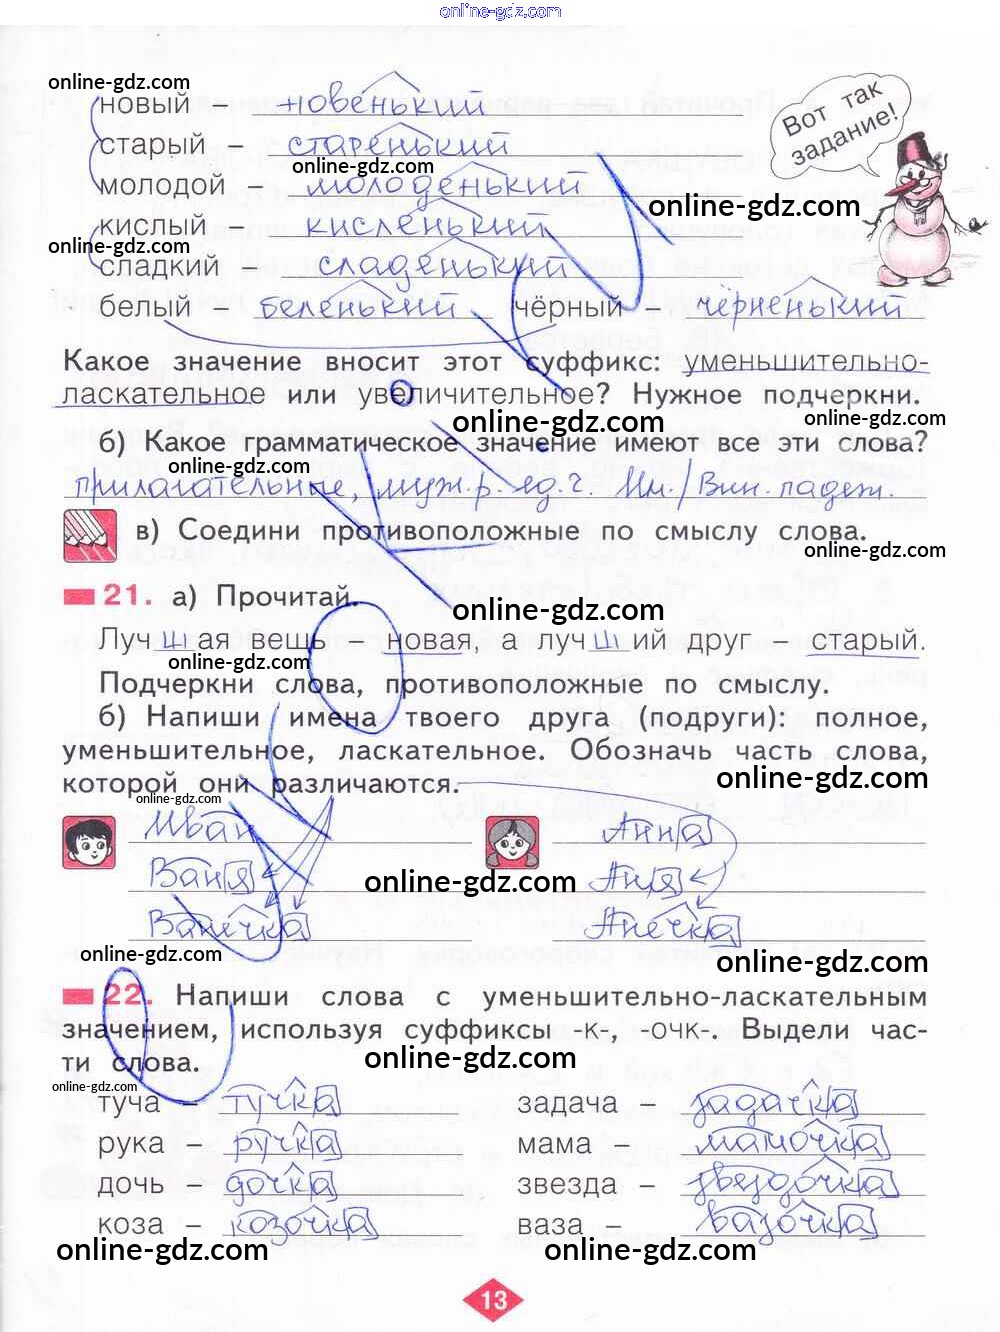 online-gdz.com
online-gdz.com
новый – новенький
Вот так
задание!
старый – старенький
online-gdz.com
молодой – молоденький
online-gdz.com
кислый кисленький
online-gdz.com
сладкий сладенький
белый – беленький чёрный – чёрненький
Какое значение вносит этот суффикс: уменьшительно-
ласкательное или увеличительное? Нужное подчеркни.
online-gdz.com
online-gdz.com
б) Какое грамматическое значение имеют все эти слова?
online-gdz.com
прилагательные, муж.р. ед.ч. Им./Вин. падеж.
в) Соедини противоположные по смыслу слова.
online-gdz.com
21. а) Прочитай.
online-gdz.com
Луч ш ая вещь – новая, а луч ш ий друг – старый.
Подчеркни слова, противоположные по смыслу.
б) Напиши имена твоего друга (подруги): полное,
уменьшительное, ласкательное. Обозначь часть слова,
которой они различаются.
online-gdz.com
online-gdz.com
Иван Анна
Ваня Аня
online-gdz.com
Ванечка Анечка
online-gdz.com
online-gdz.com
22. Напиши слова с уменьшительно-ласкательным
значением, используя суффиксы -к-, -очк-. Выдели час-
ти слова.
online-gdz.com
online-gdz.com
туча – тучка задача – задачка
рука – ручка мама – мамочка
дочь – дочка звезда – звездочка
коза – козочка ваза – вазочка
online-gdz.com online-gdz.com
13